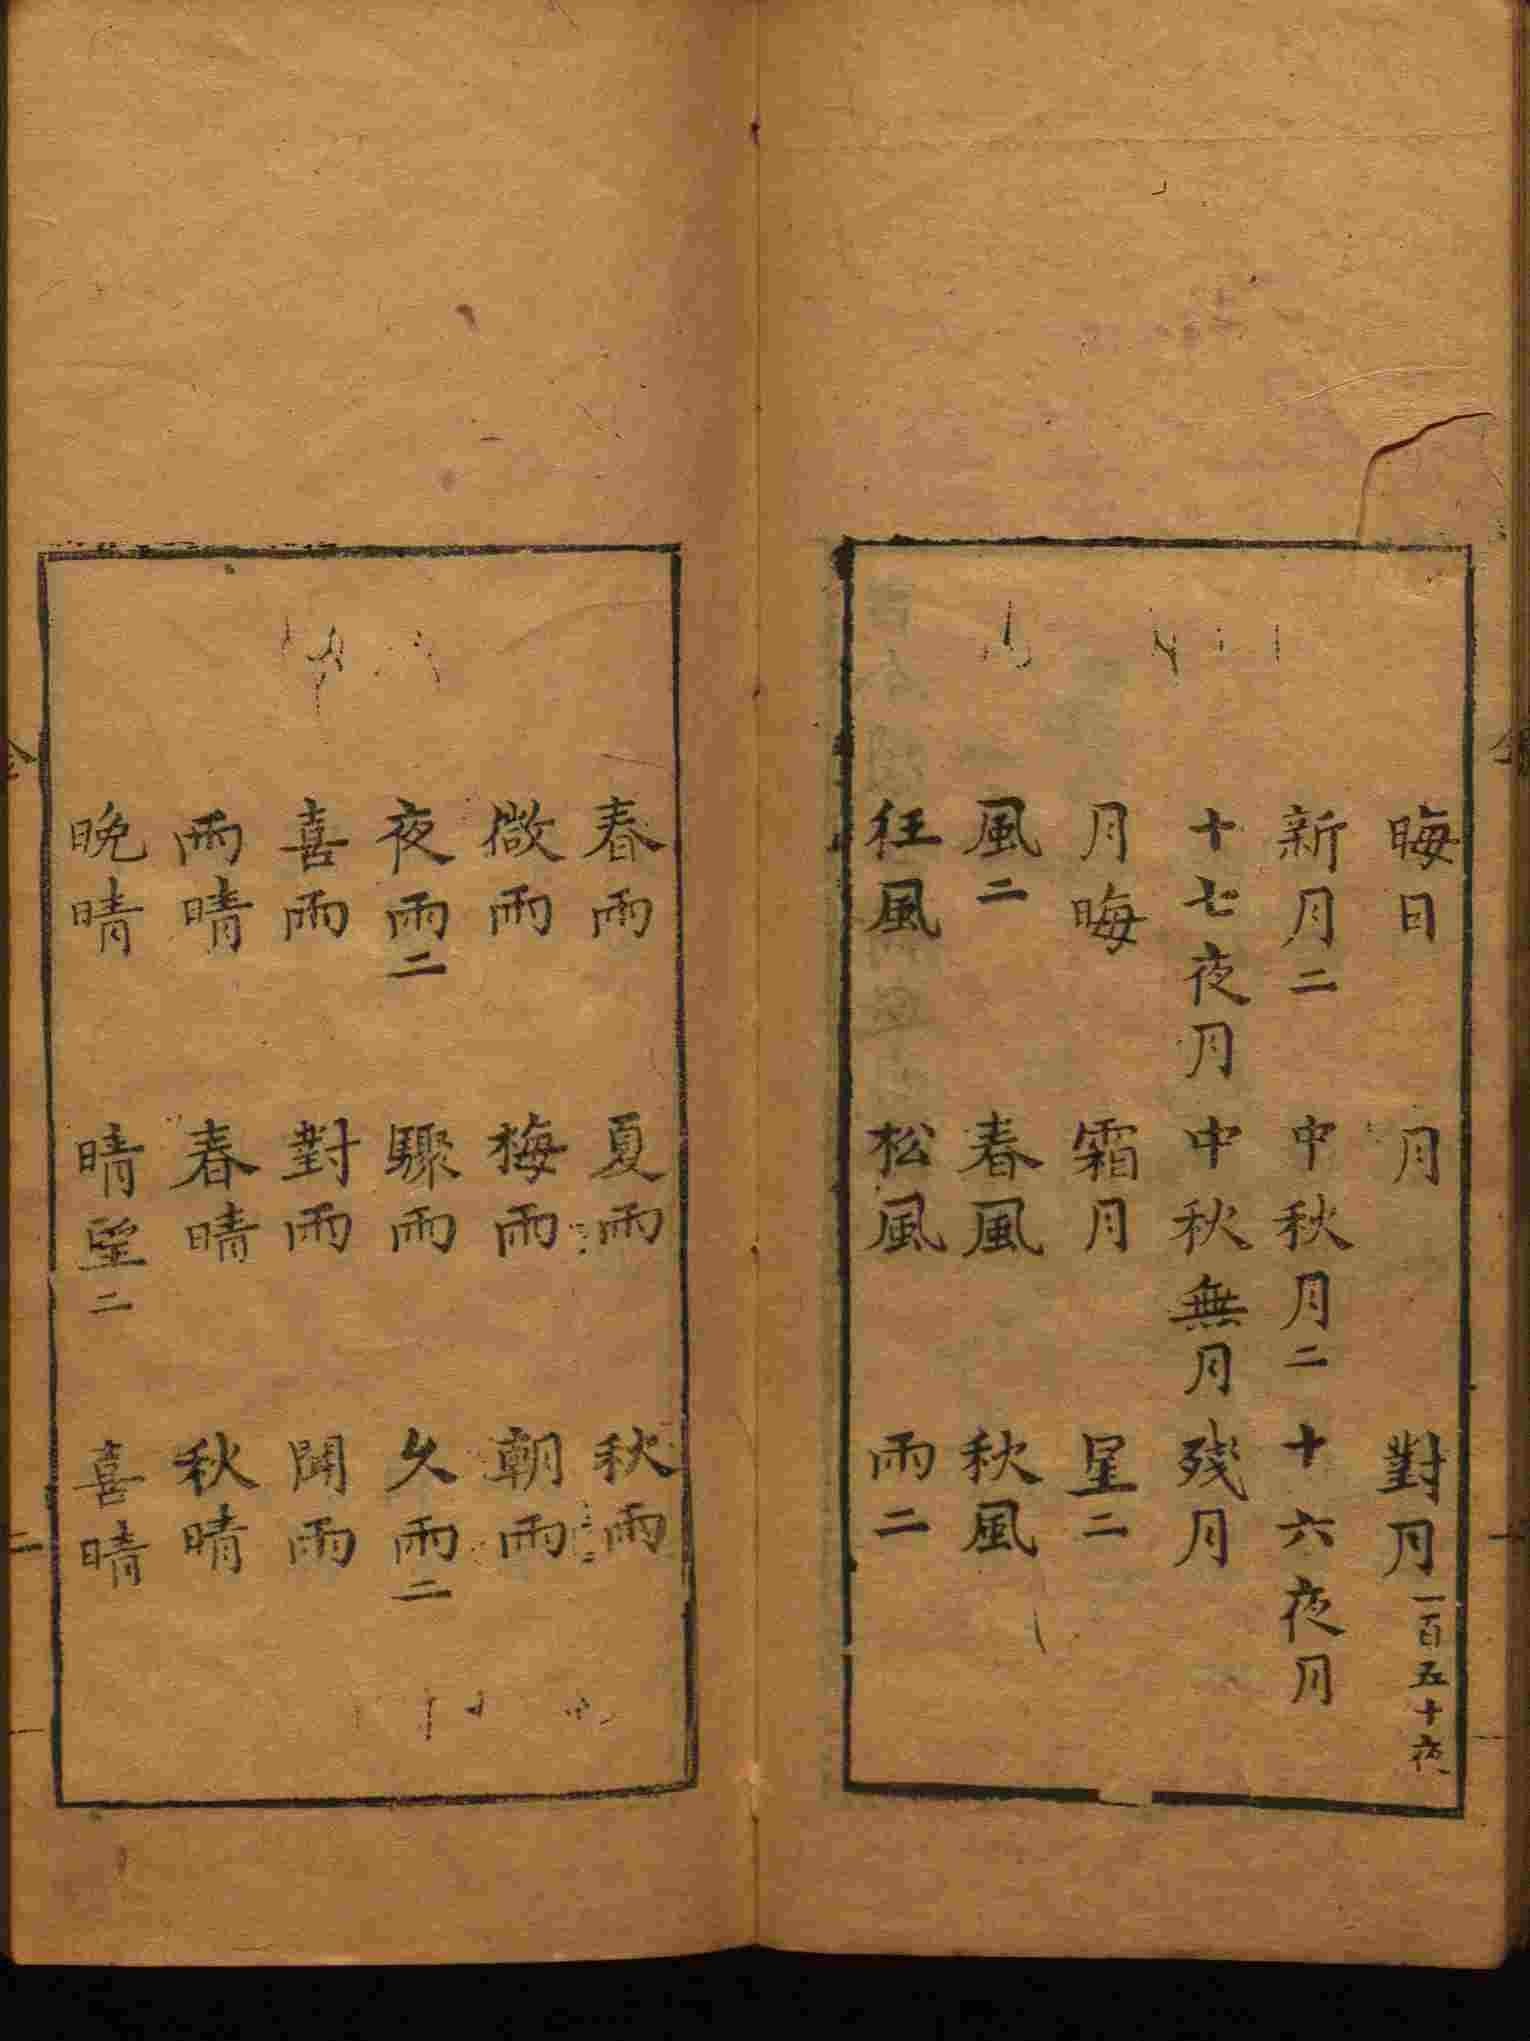 晦日 月 對月一百五十夜
新月二 中秋月二 十六夜月
十七夜月 中秋無月 殘月
月晦 霜月 星二
風二 春風 秋風
狂風 松風 雨二
春雨 夏雨 秋雨
微雨 梅雨 朝雨
夜雨二 驟雨 久雨二
喜雨 對雨 聞雨
雨晴 春晴 秋晴
晚晴 晴望二 喜晴